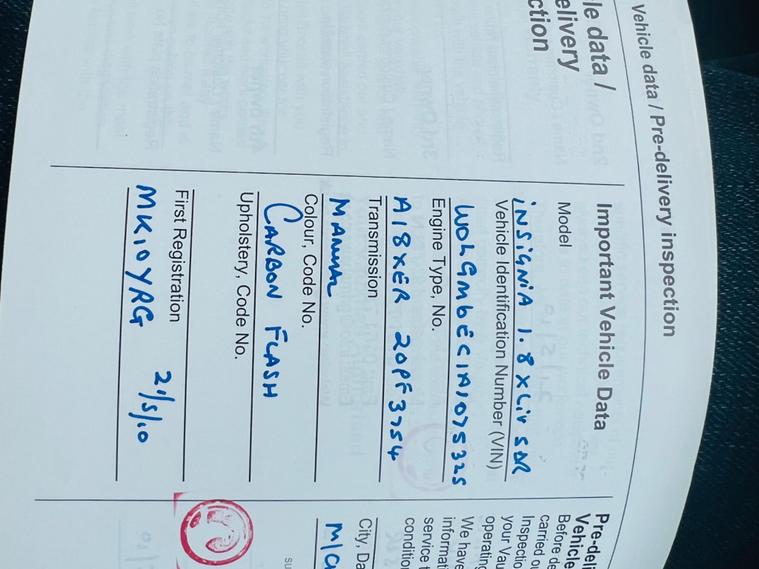 Vehicle data / Pre-delivery inspection
le data /
elivery
ction
Important Vehicle Data
Model
iNSiGNiA 1.8 XLiV 5DR
Vehicle Identification Number (VIN)
WOLGM6EC1A1075325
Engine Type, No.
A18XER 20PF3754
Transmission
MANUAL
Colour, Code No.
CARBON FLASH
Upholstery, Code No.
First Registration
MK10YRG 21/5/10
Pre-deli
Vehicle
Before de
carried ou
Inspectio
your Vau
operating
We have
informati
service t
condition
City, Da
M/C
su